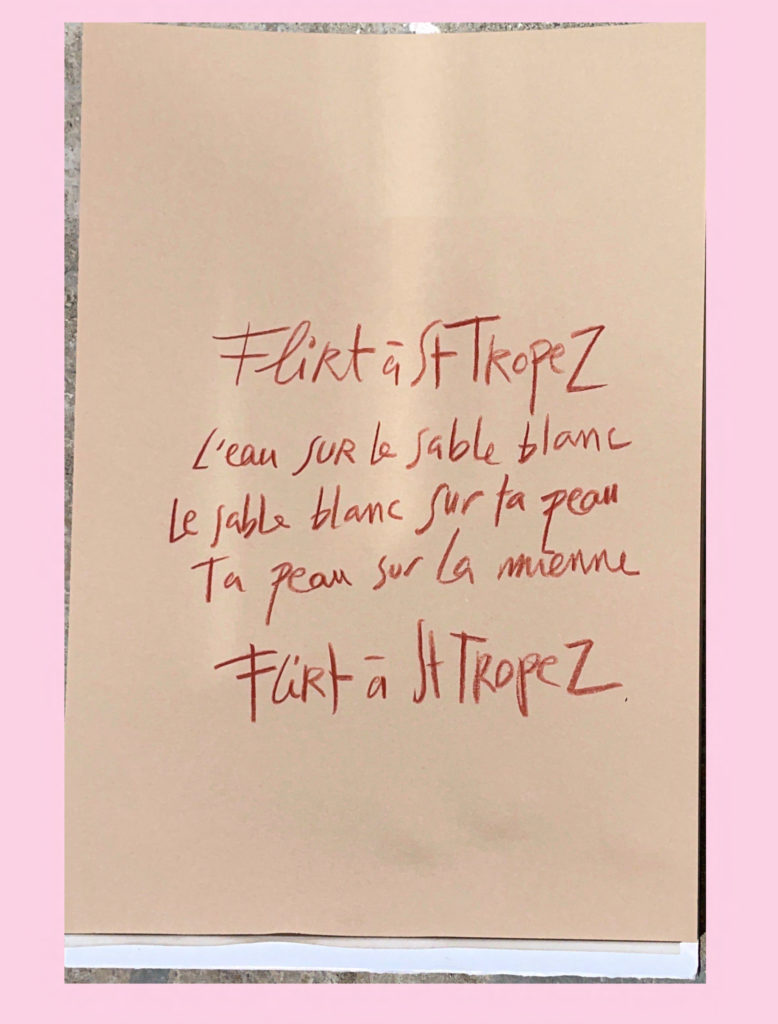 Flirt à St Tropez
L'eau sur le sable blanc
Le sable blanc sur ta peau
Ta peau sur la mienne
Flirt à St Tropez